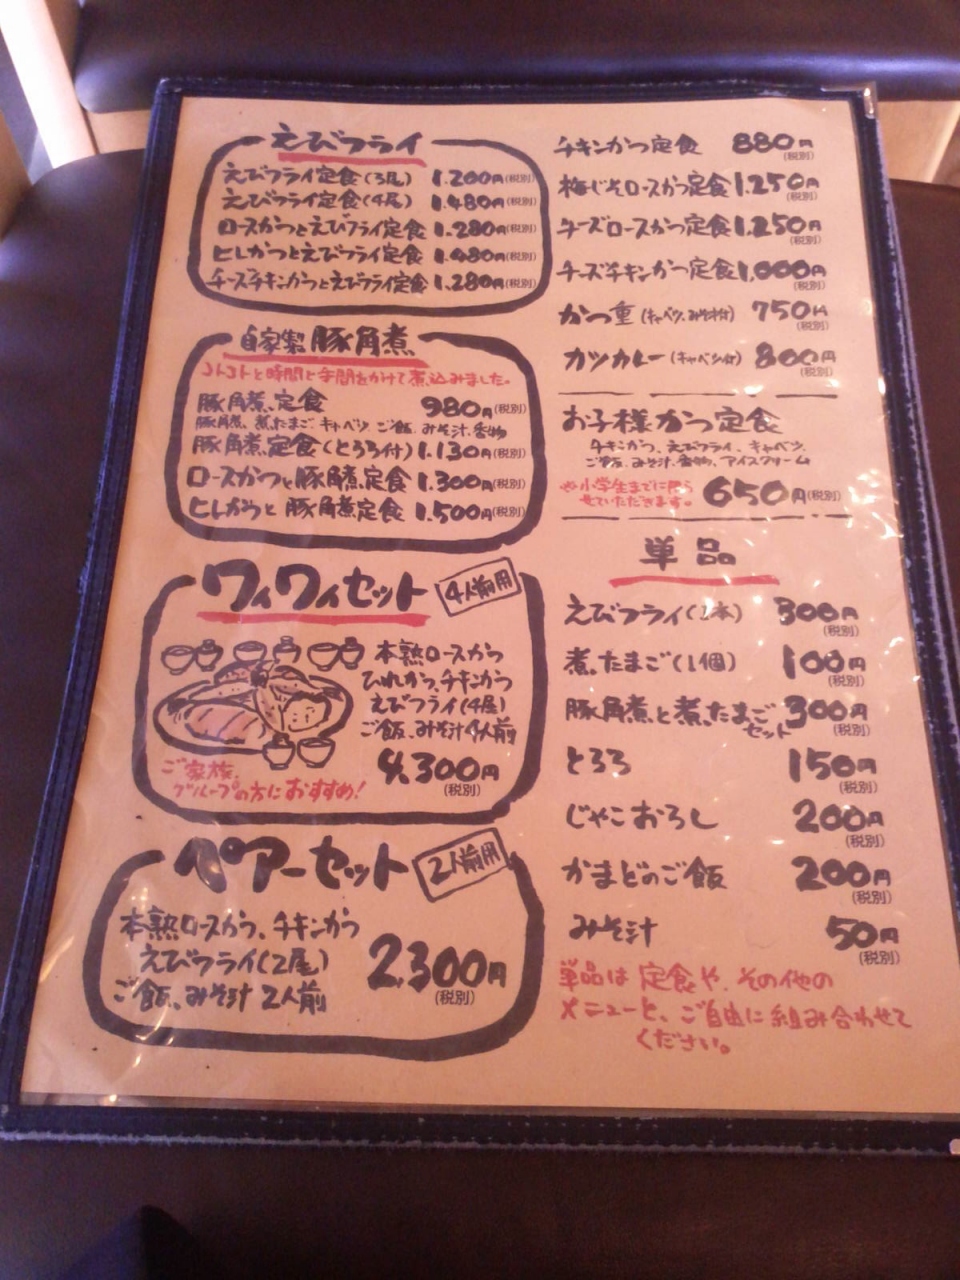 えびフライ
えびフライ定食(3尾) 1.200円(税別)
えびフライ定食(4尾) 1.480円(税別)
ロースかつとえびフライ定食 1.280円(税別)
ヒレかつとえびフライ定食 1.480円(税別)
チーズチキンかつとえびフライ定食 1.280円(税別)
自家製 豚角煮
コトコトと時間と手間をかけて煮込みました。
豚角煮定食 980円(税別)
豚角煮、煮たまご、キャベツ、ご飯、みそ汁、香物
豚角煮定食(とろろ付) 1.130円(税別)
ロースかつと豚角煮定食 1.300円(税別)
ヒレかつと豚角煮定食 1.500円(税別)
ワイワイセット 4人前用
本熟ロースかつ
ひれかつ、チキンかつ
えびフライ(4尾)
ご飯、みそ汁4人前
4,300円
(税別)
ご家族、
グループの方におすすめ!
ペアーセット 2人前用
本熟ロースかつ、チキンかつ
えびフライ(2尾)
ご飯、みそ汁 2人前
2,300円
(税別)
チキンかつ定食 880円
(税別)
梅じそロースかつ定食 1,250円
(税別)
チーズロースかつ定食 1,250円
(税別)
チーズチキンかつ定食 1,000円
(税別)
かつ重(キャベツ、みそ汁付) 750円
(税別)
カツカレー(キャベツ付) 800円
(税別)
お子様かつ定食
チキンかつ、えびフライ、キャベツ、
ご飯、みそ汁、香物、アイスクリーム
※小学生までに限らせていただきます。 650円(税別)
単品
えびフライ(2本) 300円
(税別)
煮たまご(1個) 100円
(税別)
豚角煮と煮たまごセット 300円
(税別)
とろろ 150円
(税別)
じゃこおろし 200円
(税別)
かまどのご飯 200円
(税別)
みそ汁 50円
(税別)
単品は定食や、その他の
メニューと、ご自由に組み合わせて
ください。